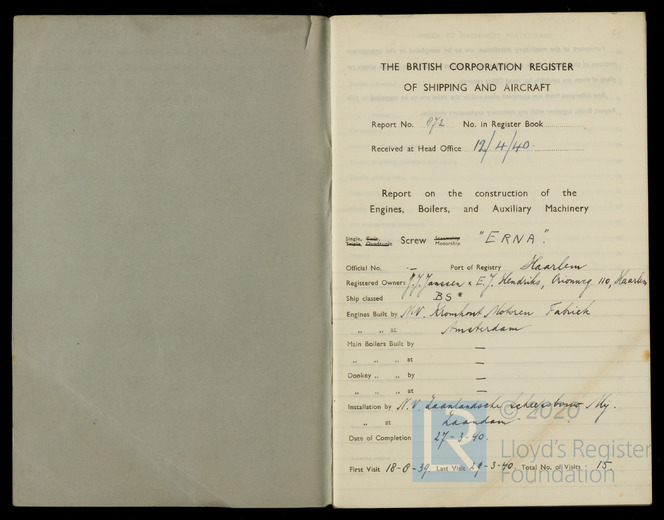 THE BRITISH CORPORATION REGISTER
OF SHIPPING AND AIRCRAFT
Report No. 872 No. in Register Book
Received at Head Office 12/4/40.
Report on the construction of the
Engines, Boilers, and Auxiliary Machinery
Single, Twin, Triple, Quadruple Screw Steamship Motorship "ERNA".
Official No. — Port of Registry Haarlem
Registered Owners J.J. Janssen & E.J. Hendriks, Orionweg 110, Haarlem
Ship classed BS*
Engines Built by N.V. Kromhout Motoren Fabriek
„ „ at Amsterdam
Main Boilers Built by —
„ „ „ at —
Donkey „ „ by —
„ „ „ at —
Installation by N.V. Zaanlandsche Scheepsbouw Mij.
„ at Zaandam
Date of Completion 27-3-40.
First Visit 18-8-39. Last Visit 29-3-40. Total No. of Visits 15
© 2020
Lloyd's Register
Foundation